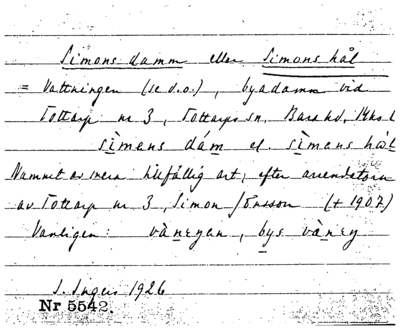 Simons damm eller Simons hål
= Vattningen (se d.o.), byadamm vid
Tottarp nr 3, Tottarps sn, Bara hd, Mhs l
sìmens dám el. sìmens hål
Namnet av mera tillfällig art; efter arrendatorn
av Tottarp nr 3, Simon Jönsson (+ 1907)
Vanligen: , bys
I. Ingers 1926
Nr 5542.